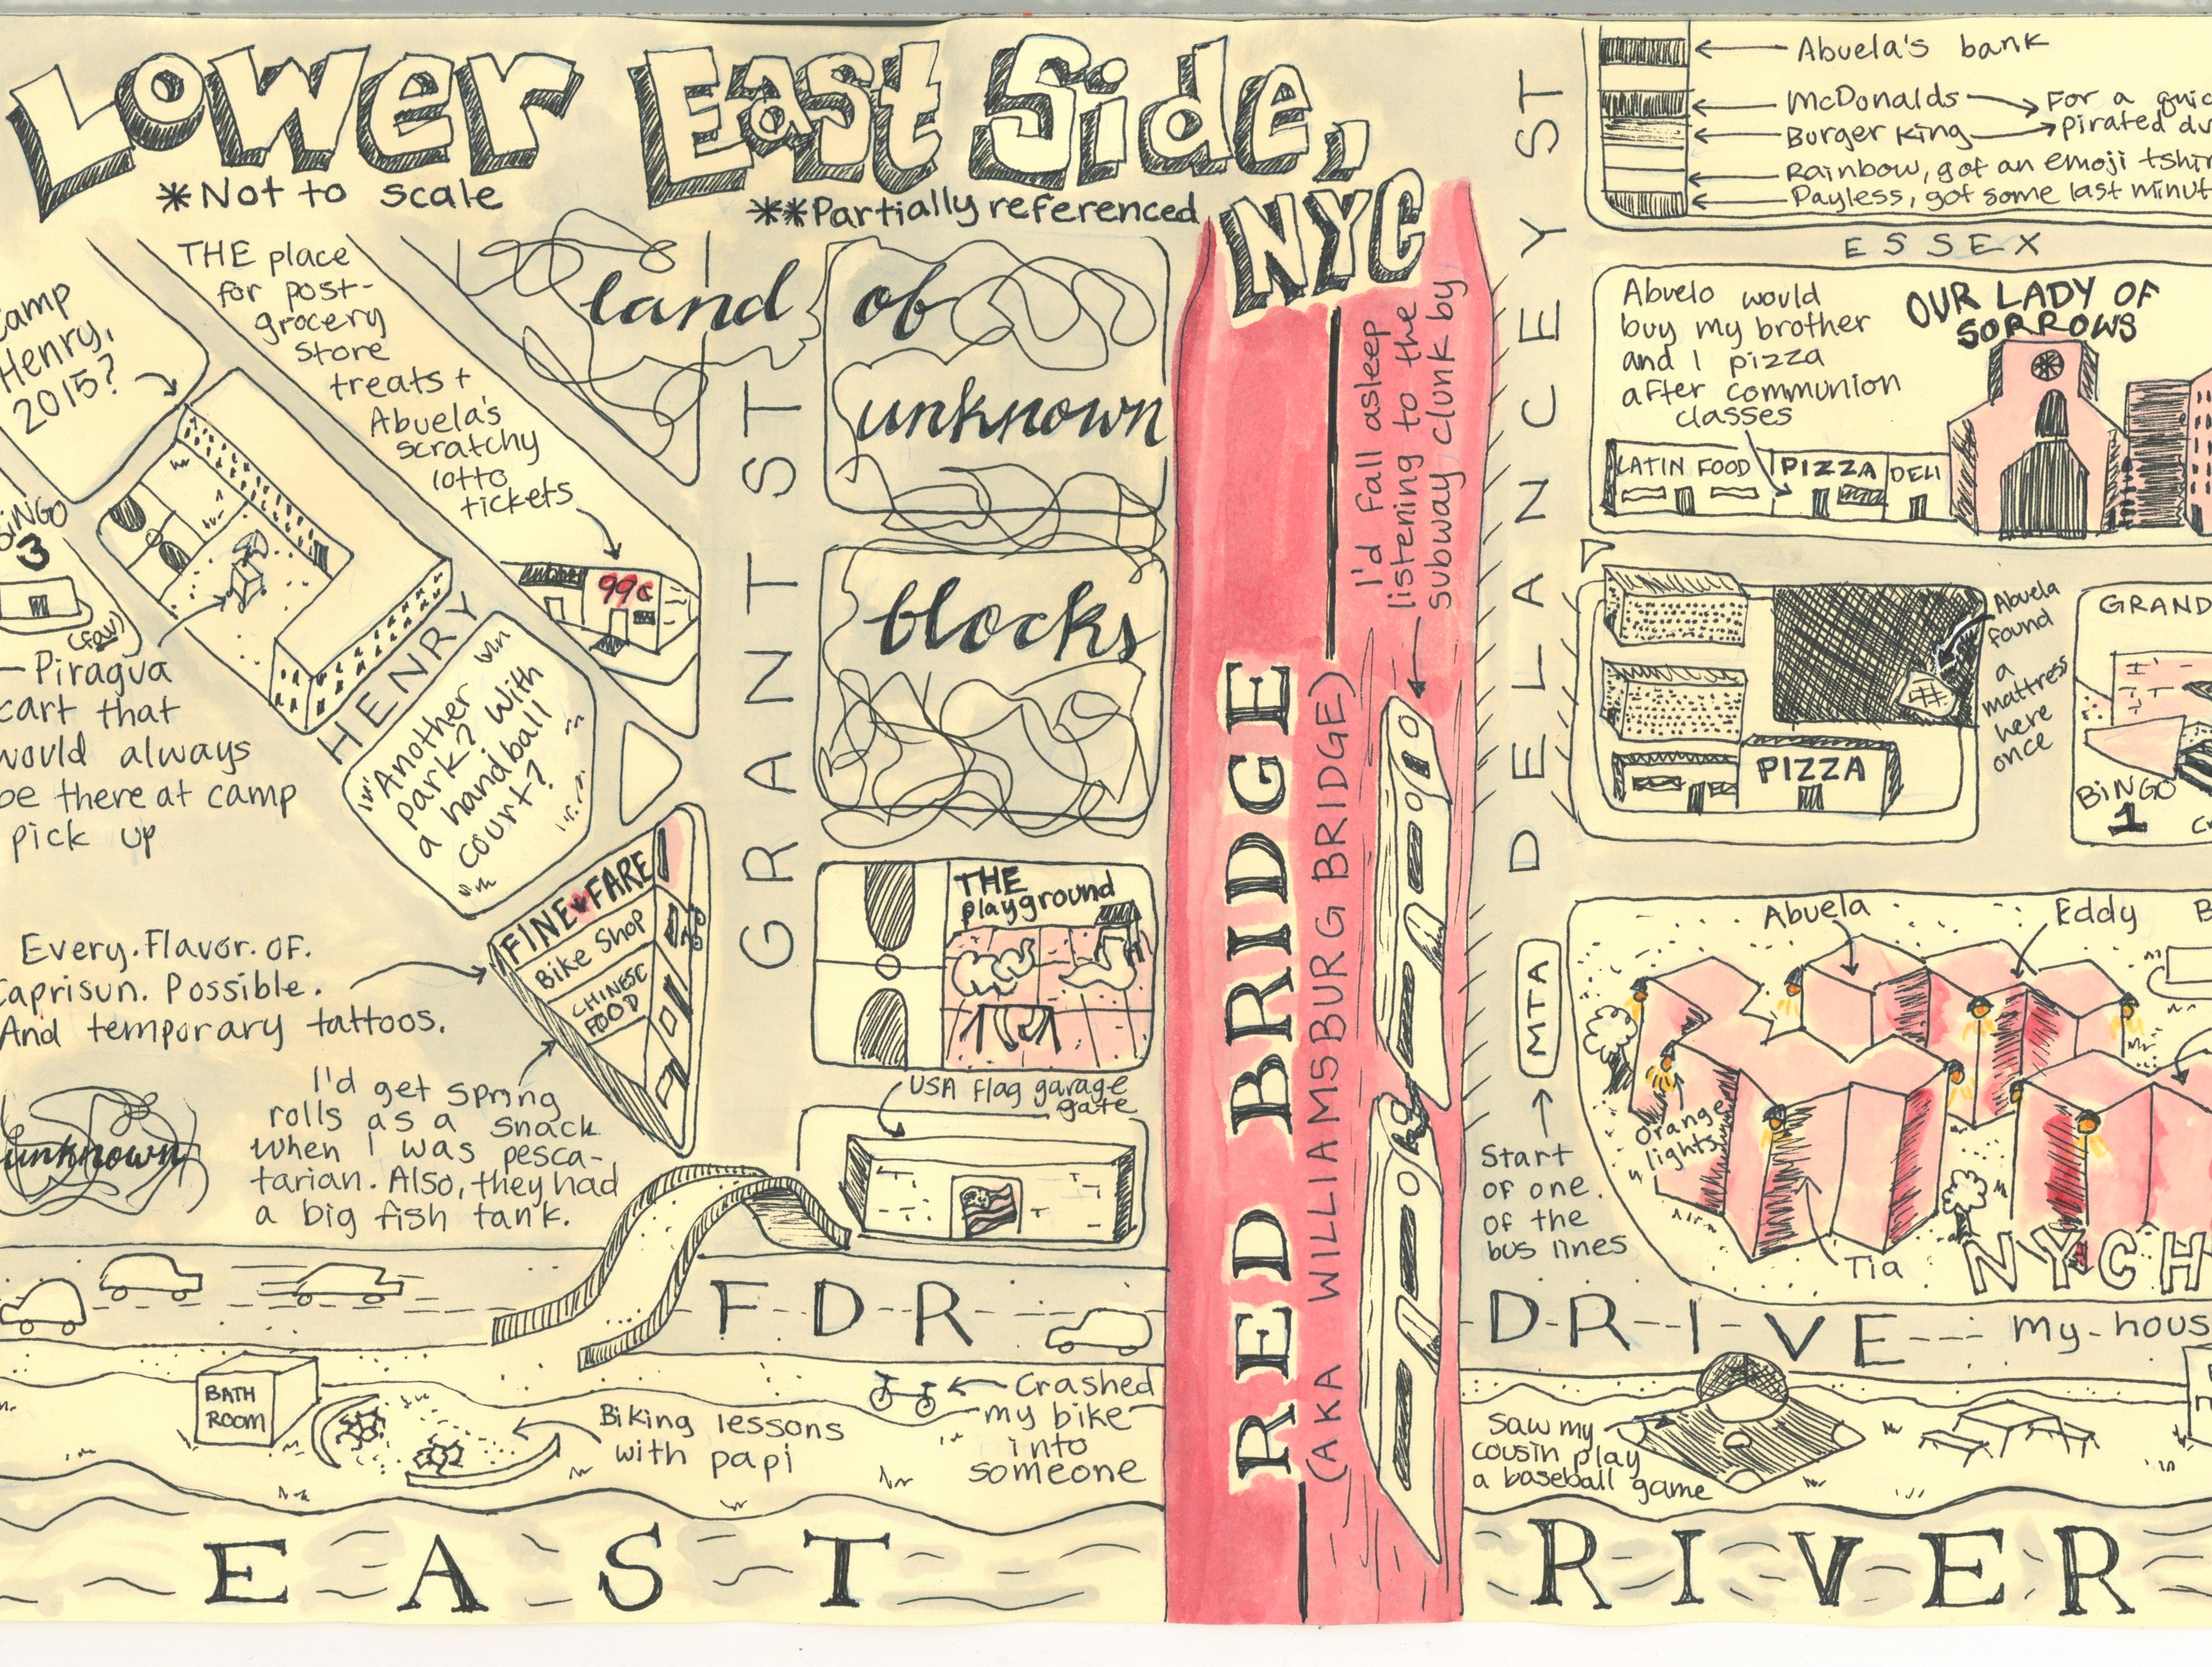 Lower East Side,
NYC
*Not to scale
**Partially referenced
Camp
Henry,
2015?
THE place
for post-
grocery
store
treats +
Abuela's
scratchy
lotto
tickets
99¢
BiNGO
3
(fav)
Piragua
cart that
would always
be there at camp
pick up
HENRY
Another
park? With
a handball
court?
FINE FARE
Bike Shop
CHINESE
FOOD
Every. Flavor. OF.
Caprisun. Possible.
And temporary tattoos.
I'd get spring
rolls as a snack
when I was pesca-
tarian. Also, they had
a big fish tank.
unknown
land of
unknown
blocks
GRANT ST
THE
playground
USA flag garage
gate
RED BRIDGE
(AKA WILLIAMSBURG BRIDGE)
I'd fall asleep
listening to the
subway clunk by
DELANCEY ST
Abuela's bank
McDonalds
For a
Burger King
pirated
Rainbow, got an emoji
Payless, got some last
ESSEX
Abuelo would
buy my brother
and I pizza
after communion
classes
OUR LADY OF
SORROWS
LATIN FOOD
PIZZA
DELI
Abuela
found
a
mattress
here
once
PIZZA
GRAND
BiNGO
1
MTA
Start
of one.
of the
bus lines
Abuela
Eddy
Orange
lights
Tia
NYCH
FDR DRIVE
my
BATH
ROOM
Biking lessons
with papi
Crashed
my bike
into
someone
Saw my
cousin play
a baseball game
EAST RIVER